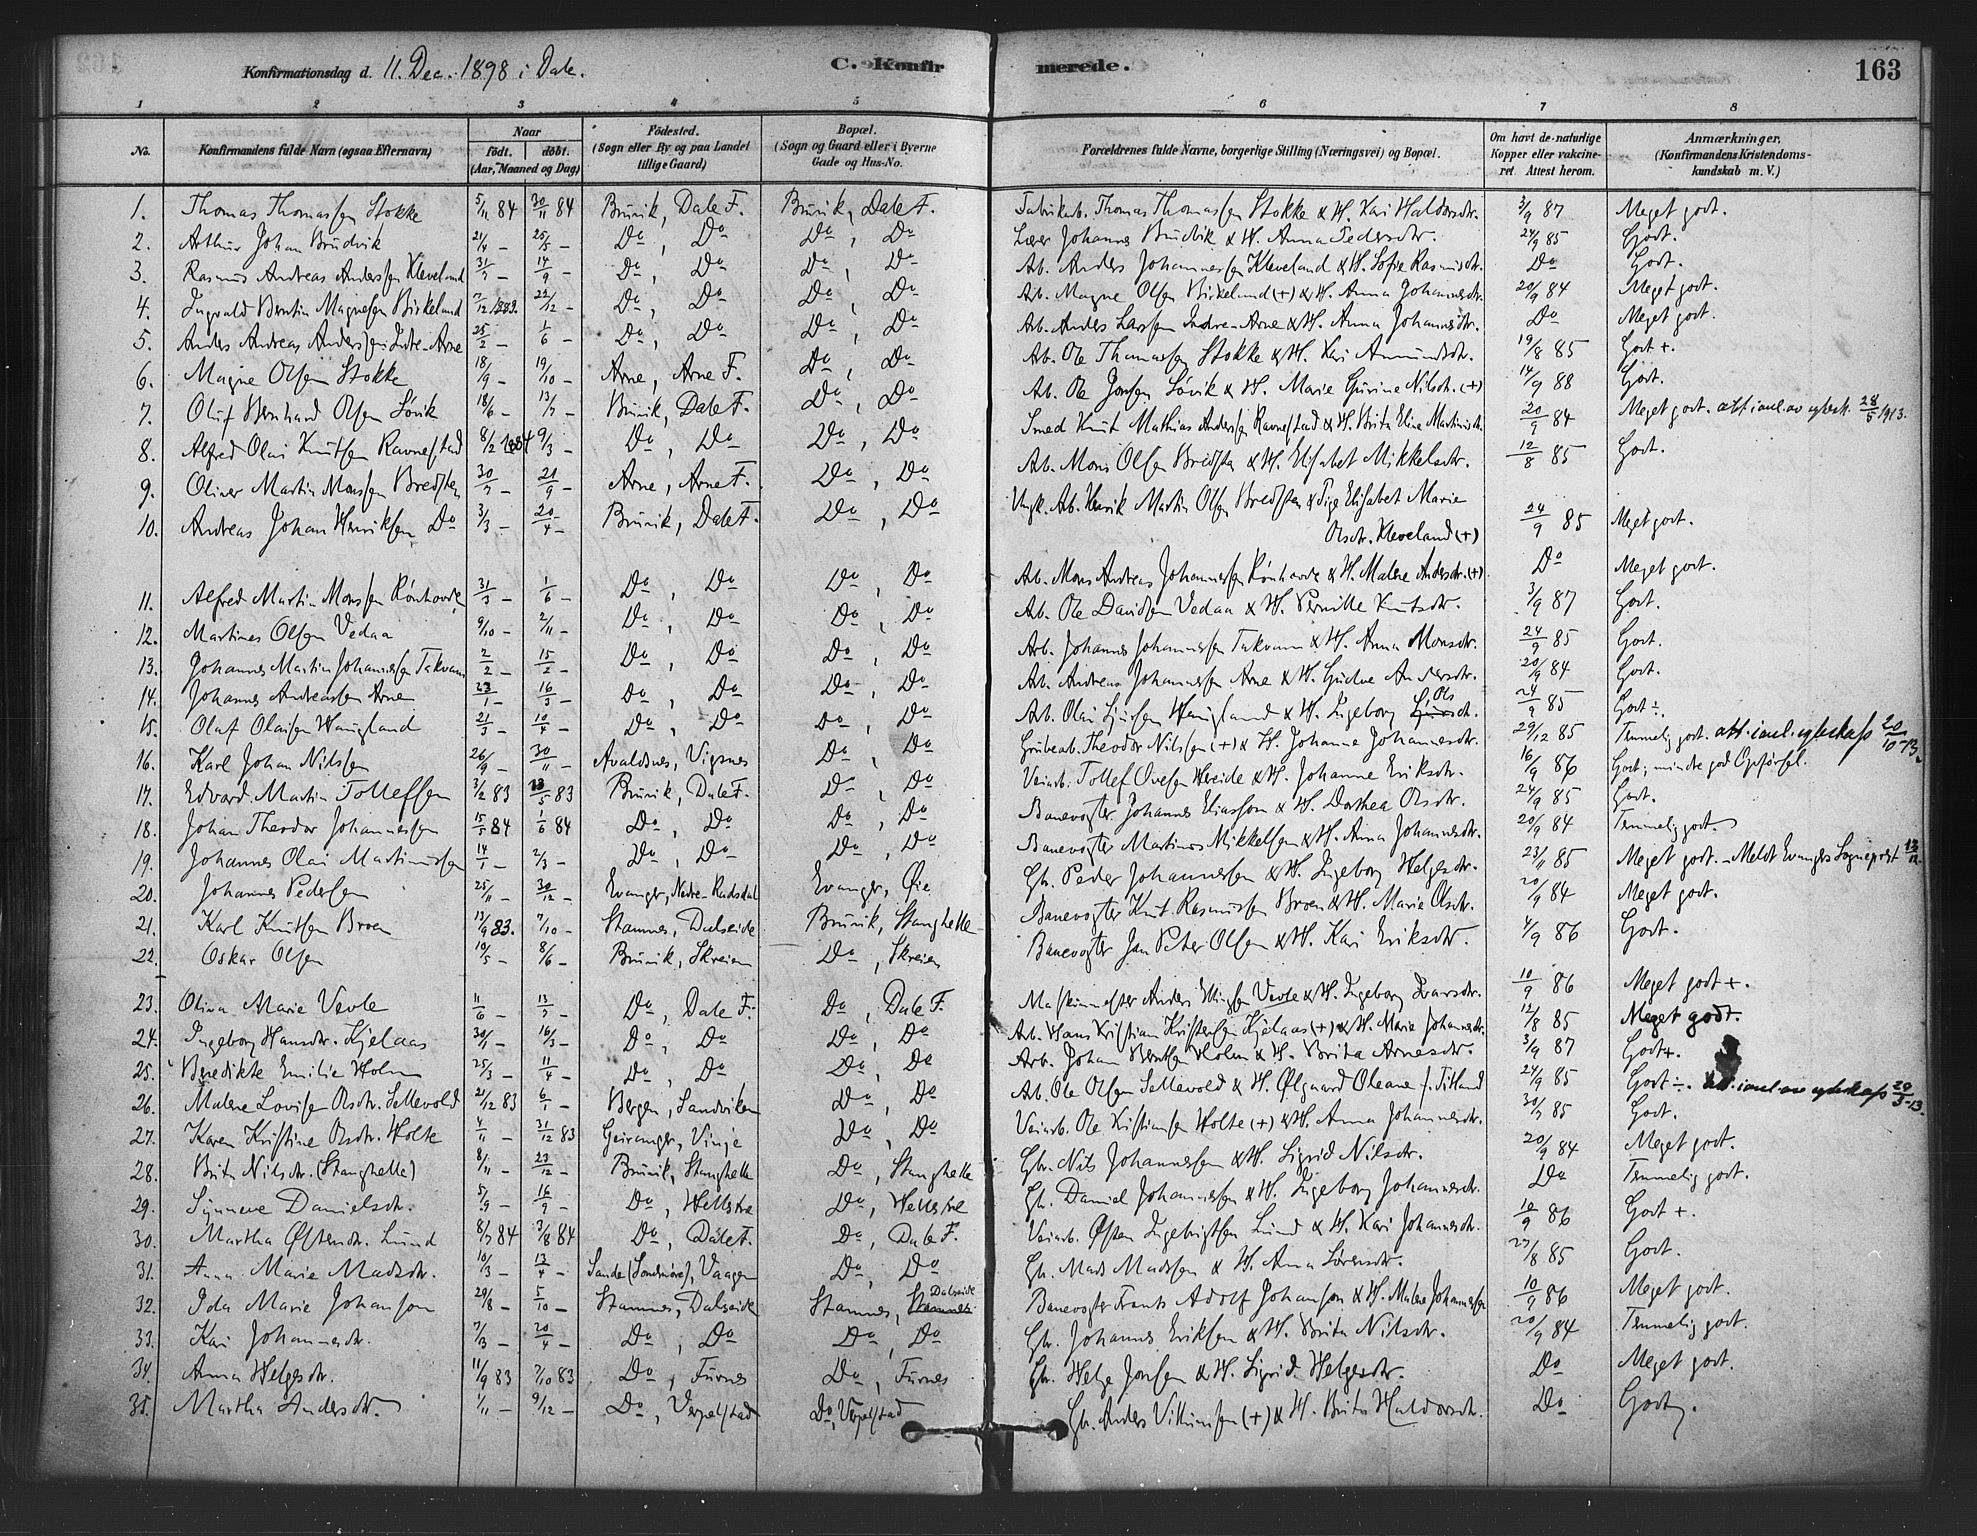 Konfirmationsdag d. 11. Dec. 1898 i Dale. C. Konfirmerede. 163
1 2 3 4 5 6 7 8
No. Konfirmandens fulde Navn (ogsaa Efternavn) Naar födt. döbt. (Aar, Maaned og Dag) Födested. (Sogn eller By og paa Landet tillige Gaard) Bopæl. (Sogn og Gaard eller i Byerne Gade og Hus-No. Forældrenes fulde Navne, borgerlige Stilling (Næringsvei) og Bopæl. Om havt de naturlige Kopper eller vakcineret Attest herom. Anmærkninger, (Konfirmandens Kristendomskundskab m. V.)
1. Thomas Thomassen Stokke 5/11 84 30/11 84 Bruvik, Dale F. Bruvik, Dale F. Fabrikarb. Thomas Thomassen Stokke & H. Kari Haldorsdtr. 3/9 87 Meget godt.
2. Arthur Johan Brudvik 21/4 – 25/5 – Do, Do Do, Do Lærer Johannes Brudvik & H. Anna Pedersdtr. 24/9 85 Godt.
3. Rasmus Andreas Anderssen Kleveland 31/7 – 14/9 – Do, Do Do, Do Arb. Anders Johannessen Kleveland & H. Sofie Rasmusdtr. Do Godt.
4. Ingvald Berntin Magnesen Birkeland 7/12 1883. 22/12 – Do, Do Do, Do Arb. Magne Olsen Birkeland (+) & H. Anna Johannesdtr. 20/9 84 Meget godt.
5. Anders Andreas Anderssen Indre-Arne 25/2 – 1/6 – Do, Do Do, Do Arb. Anders Larssen Indre-Arne & H. Anna Johannesdtr. Do Meget godt.
6. Magne Olsen Stokke 18/9 – 19/10 – Arne, Arne F. Do, Do Arb. Ole Thomassen Stokke & H. Kari Amundsdtr. 19/8 85 Godt +.
7. Oluf Bernhard Olsen Lövik 18/6 – 13/7 – Bruvik, Dale F. Do, Do Arb. Ole Jonsen Lövik & H. Marie Gurine Nilsdtr. (+) 14/9 88 Godt.
8. Alfred Olai Knutsen Ravnestad 8/2 1884 9/3 – Do, Do Do, Do Smed Knut Mathias Anderssen Ravnestad & H. Brita Eline Martinsdtr. 20/9 84 Meget godt. att. i anl. av egtesk. 28/5 1913.
9. Oliver Martin Monssen Bredsten 30/7 – 21/9 – Arne, Arne F. Do, Do Arb. Mons Olsen Bredsten & H. Elisabet Mikkelsdtr. 12/8 85 Godt.
10. Andreas Johan Henriksen Do 3/3 – 20/4 – Bruvik, Dale F. Do, Do Ungk. Arb. Henrik Martin Olsen Bredsten & Pige Elisabet Marie
Olsdtr. Kleveland (+) 24/9 85 Meget godt.
11. Alfred Martin Monssen Rönhovde 31/3 – 1/6 – Do, Do Do, Do Arb. Mons Andreas Johannessen Rönhovde & H. Malene Andersdtr. (+) Do Meget godt.
12. Martines Olsen Vedaa 9/10 – 2/11 – Do, Do Do, Do Arb. Ole Davidsen Vedaa & H. Pernille Knutsdtr. 3/9 87 Godt.
13. Johannes Martin Johannessen Takvam 2/2 – 15/2 – Do, Do Do, Do Arb. Johannes Johannessen Takvam & H. Anna Monsdtr. 24/9 85 Godt.
14. Johannes Andreassen Arne 23/1 – 16/3 – Do, Do Do, Do Arb. Andreas Johannessen Arne & H. Gudve Andersdtr. 20/9 84 Godt.
15. Olaf Olaisen Haugland 21/3 – 10/4 – Do, Do Do, Do Arb. Olai Sjursen Haugland & H. Ingeborg Olsdtr. 24/9 85 Godt ÷.
16. Karl Johan Nilssen 26/9 – 30/11 – Avaldsnes, Vigsnes Do, Do Grubearb. Theodor Nilssen (+) & H. Johanne Johannesdtr. 29/12 85 Temmelig godt. att. i anl. egteskap 20/10-13.
17. Edvard Martin Tollefsen 3/2 83 13/5 83 Bruvik, Dale F. Do, Do Veiarb. Tollef Ovesen Hereide & H. Johanne Eriksdtr. 16/9 86 Godt; mindre god Opförsel.
18. Johan Theodor Johannessen 15/5 84 1/6 84 Do, Do Do, Do Banevogter Johannes Eliasson & H. Dorthea Olsdtr. 24/9 85 Godt.
19. Johannes Olai Martinussen 14/1 – 2/3 – Do, Do Do, Do Banevogter Martinus Mikkelsen & H. Anna Johannesdtr. 20/9 84 Temmelig godt.
20. Johannes Pedersen 25/11 – 30/12 – Evanger, Nedre-Rudsdal Evanger, Øie Gb. Peder Johannessen & H. Ingeborg Helgesdtr. 23/11 85 Meget godt. – Meldt Evangers Sogneprest 13/12.
21. Karl Knutsen Broen 13/9 83. 7/10 – Stamnes, Dalseide Bruvik, Stanghelle Banevogter Knut Rasmussen Broen & H. Marie Olsdtr. 20/9 84 Meget godt.
22. Oskar Olsen 10/5 – 8/6 – Bruvik, Skreien Do, Skreien Banevogter Jan Peter Olsen & H. Kari Eriksdtr. 4/9 86 Godt.
23. Oliva Marie Vevle 11/6 – 13/7 – Do, Dale F. Do, Dale F. Maskinmester Anders Ellingsen Vevle & H. Ingeborg Ivarsdtr. 10/9 86 Meget godt +.
24. Ingeborg Hansdtr. Kjelaas 30/1 – 16/3 – Do, Do Do, Do Arb. Hans Kristian Kristensen Kjelaas (+) & H. Marie Johannesdtr. 12/8 85 Meget godt.
25. Benedikte Emilie Holm 25/3 – 11/4 – Do, Do Do, Do Arb. Johan Berntsen Holm & H. Brita Arnesdtr. 3/9 87 Godt +.
26. Malene Lovise Olsdtr. Sellevold 21/12 83 6/1 – Bergen, Sandviken Do, Do Arb. Ole Olsen Sellevold & H. Ølgaard Oleane f. Titland 24/9 85 Godt ÷. att. i anl. av egteskap 20/3-13.
27. Karen Kristine Olsdtr. Holte 4/11 – 31/12 83 Geiranger, Vinje Do, Do Veiarb. Ole Kristiansen Holte (+) & H. Anna Johannesdtr. 30/7 85 Godt.
28. Brita Nilsdtr. (Stanghelle) 8/11 – 23/12 – Bruvik, Stanghelle Do, Stanghelle Gbr. Nils Johannessen & H. Sigrid Nilsdtr. 20/9 84 Meget godt.
29. Synneve Danielsdtr. 5/9 – 16/9 – Do, Hellstre Do, Hellstre Gb. Daniel Johannessen & H. Ingeborg Johannesdtr. Do Temmelig godt.
30. Martha Østensdtr. Lund 8/7 84 3/8 84 Do, Dale F. Do, Dale F. Veiarb. Østen Ingebrigtsen Lund & H. Kari Johannesdtr. 10/9 86 Godt +.
31. Anna Marie Madsdtr. 10/3 – 13/4 – Sande (Söndmöre), Vaagen Do, Do Gb. Mads Madssen & H. Anna Sörensdtr. 27/8 85 Godt.
32. Ida Marie Johanson 29/8 – 5/10 – Stamnes, Dalseide Stamnes, Dalseide Banevogter Frants Adolf Johanson & H. Malene Johannessen 10/9 86 Meget godt.
33. Kari Johannesdtr. 7/3 – 20/4 – Do, Do Do, Do Gbr. Johannes Eriksen & H. Brita Nilsdtr. 20/9 84 Temmelig godt.
34. Anna Helgesdtr. 11/9 83 7/10 83 Do, Furnes Do, Furnes Gbr. Helge Jonsen & H. Sigrid Helgesdtr. Do Meget godt.
35. Martha Andersdtr. 1/11 – 9/12 – Do, Verpelstad Do, Verpelstad Gbr. Anders Villumsen (+) & H. Brita Haldorsdtr. Do Godt.